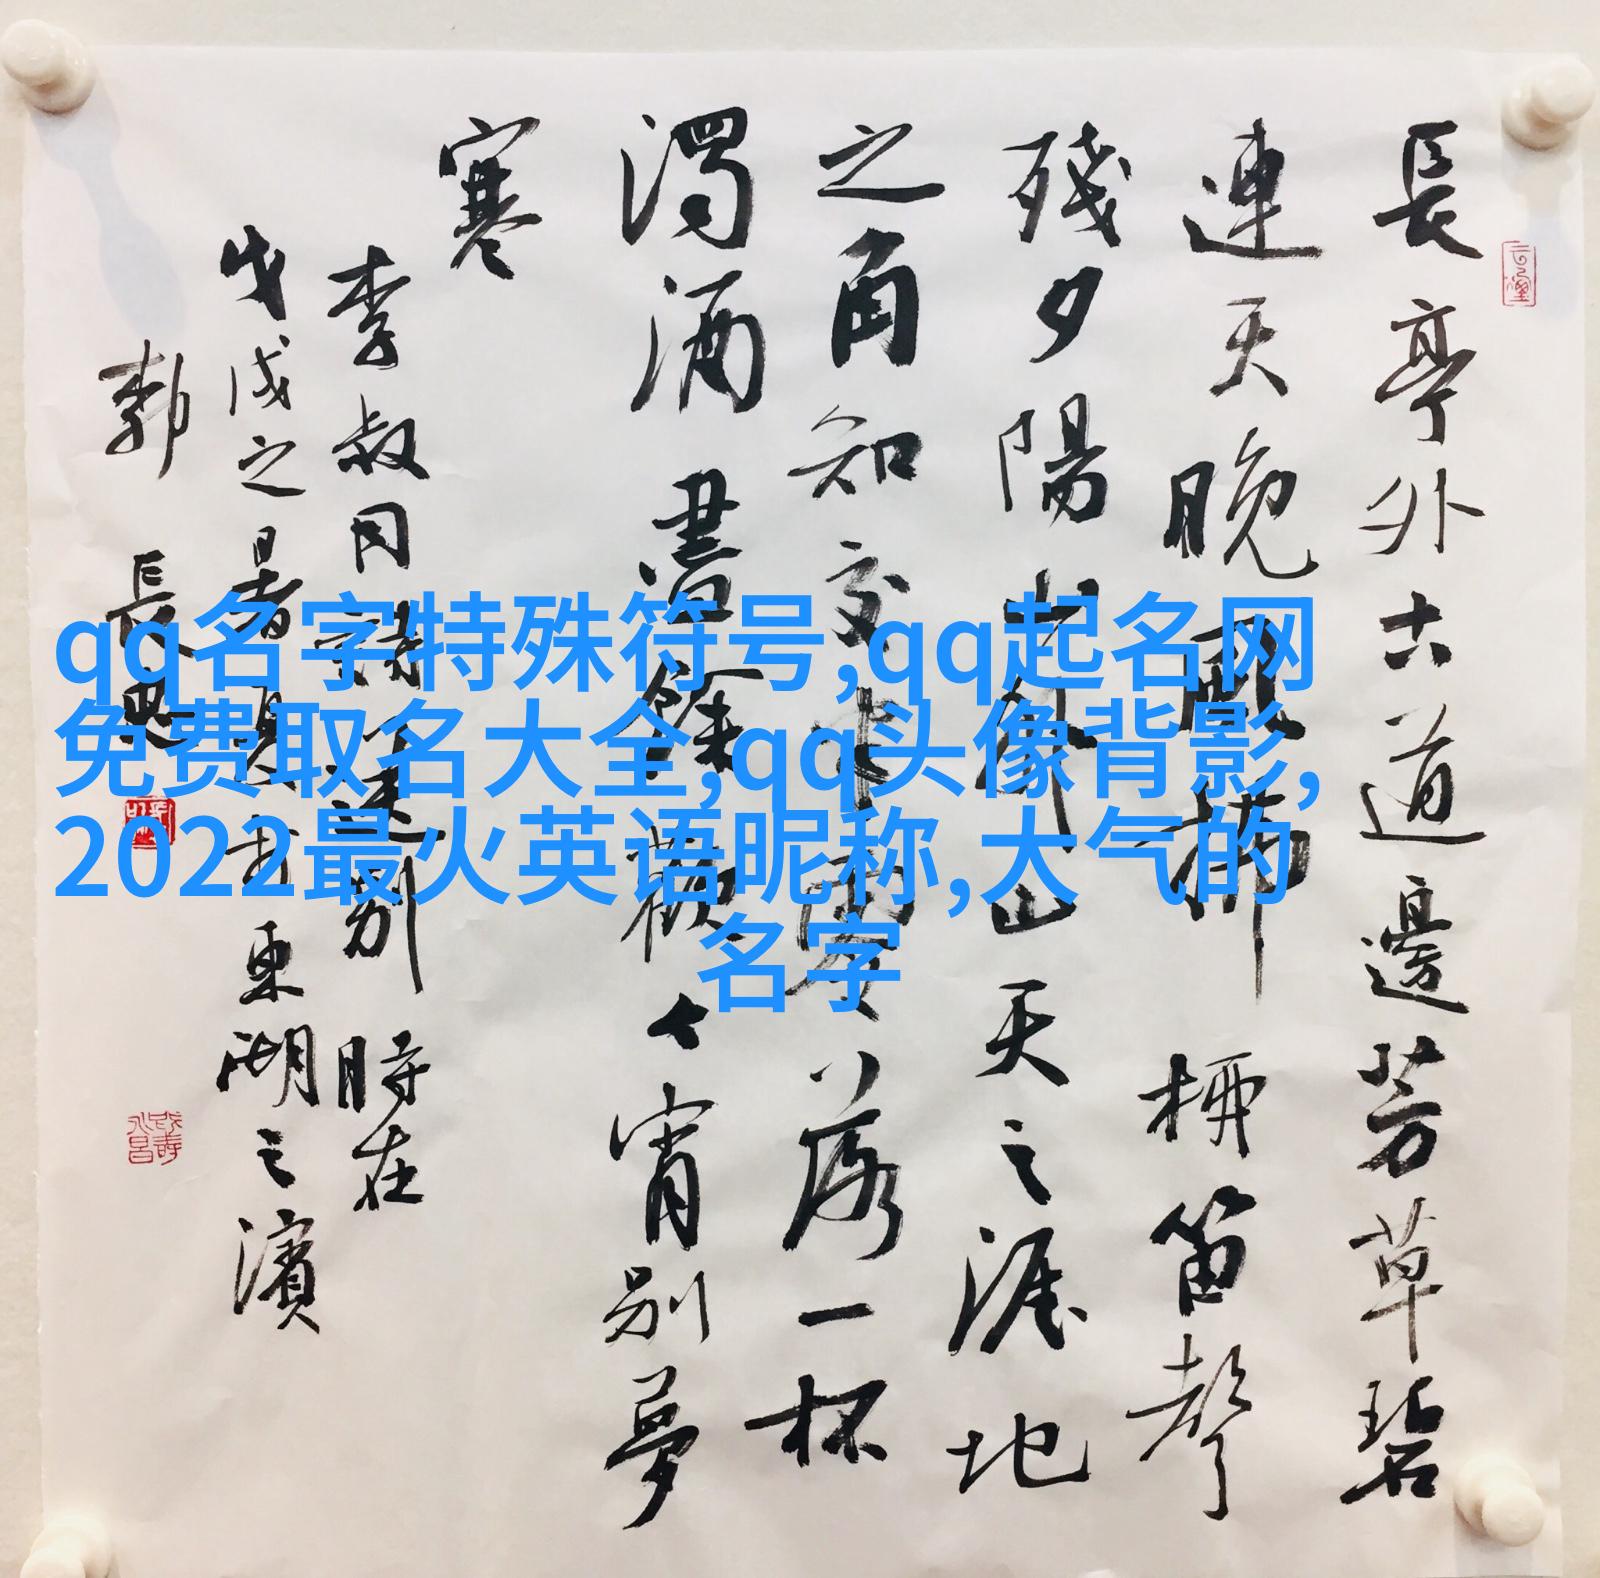 長亭外古道邊芳草碧
連天晚風拂柳笛聲
殘夕陽山外山天之涯地
之角知交半零落一杯
濁酒盡餘歡今宵別夢
寒
李叔同詩送別時在
戊戌之暑東湖之濱
郭長
qq名字特殊符号,qq起名网
免费取名大全,qq头像背影,
2022最火英语昵称,大气的
名字